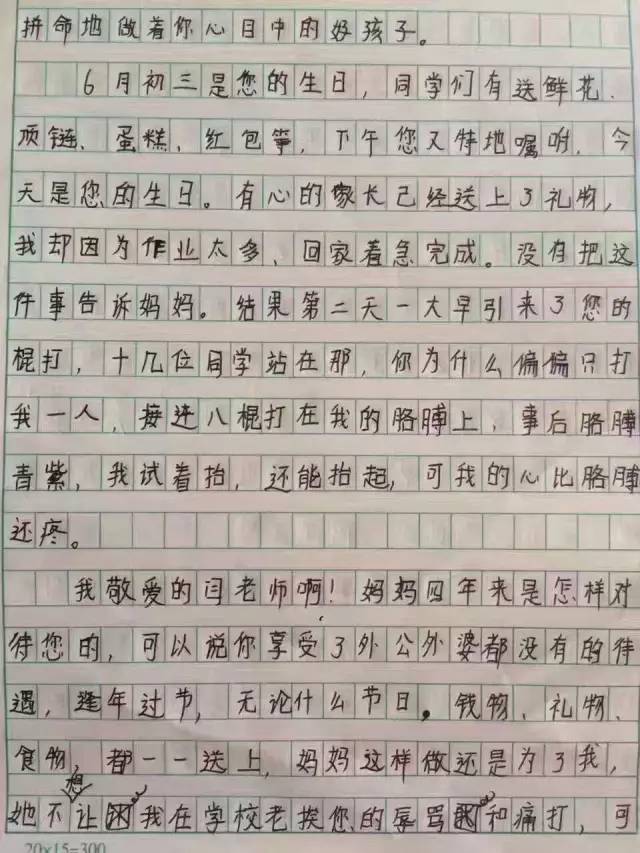 拼命地做着你心目中的好孩子。
6月初三是您的生日,同学们有送鲜花、
项链、蛋糕、红包等,下午您又特地嘱咐,今
天是您的生日。有心的家长已经送上了礼物,
我却因为作业太多、回家着急完成。没有把这
件事告诉妈妈。结果第二天一大早引来了您的
棍打,十几位同学站在那,你为什么偏偏只打
我一人,接连八棍打在我的胳膊上,事后胳膊
青紫,我试着抬,还能抬起,可我的心比胳膊
还疼。
我敬爱的闫老师啊!妈妈四年来是怎样对
待您的,可以说你享受了外公外婆都没有的待
遇,逢年过节,无论什么节日。钱物、礼物、
食物,都一一送上,妈妈这样做还是为了我,
她不想让我在学校老挨您的辱骂和痛打,可
20×15=300